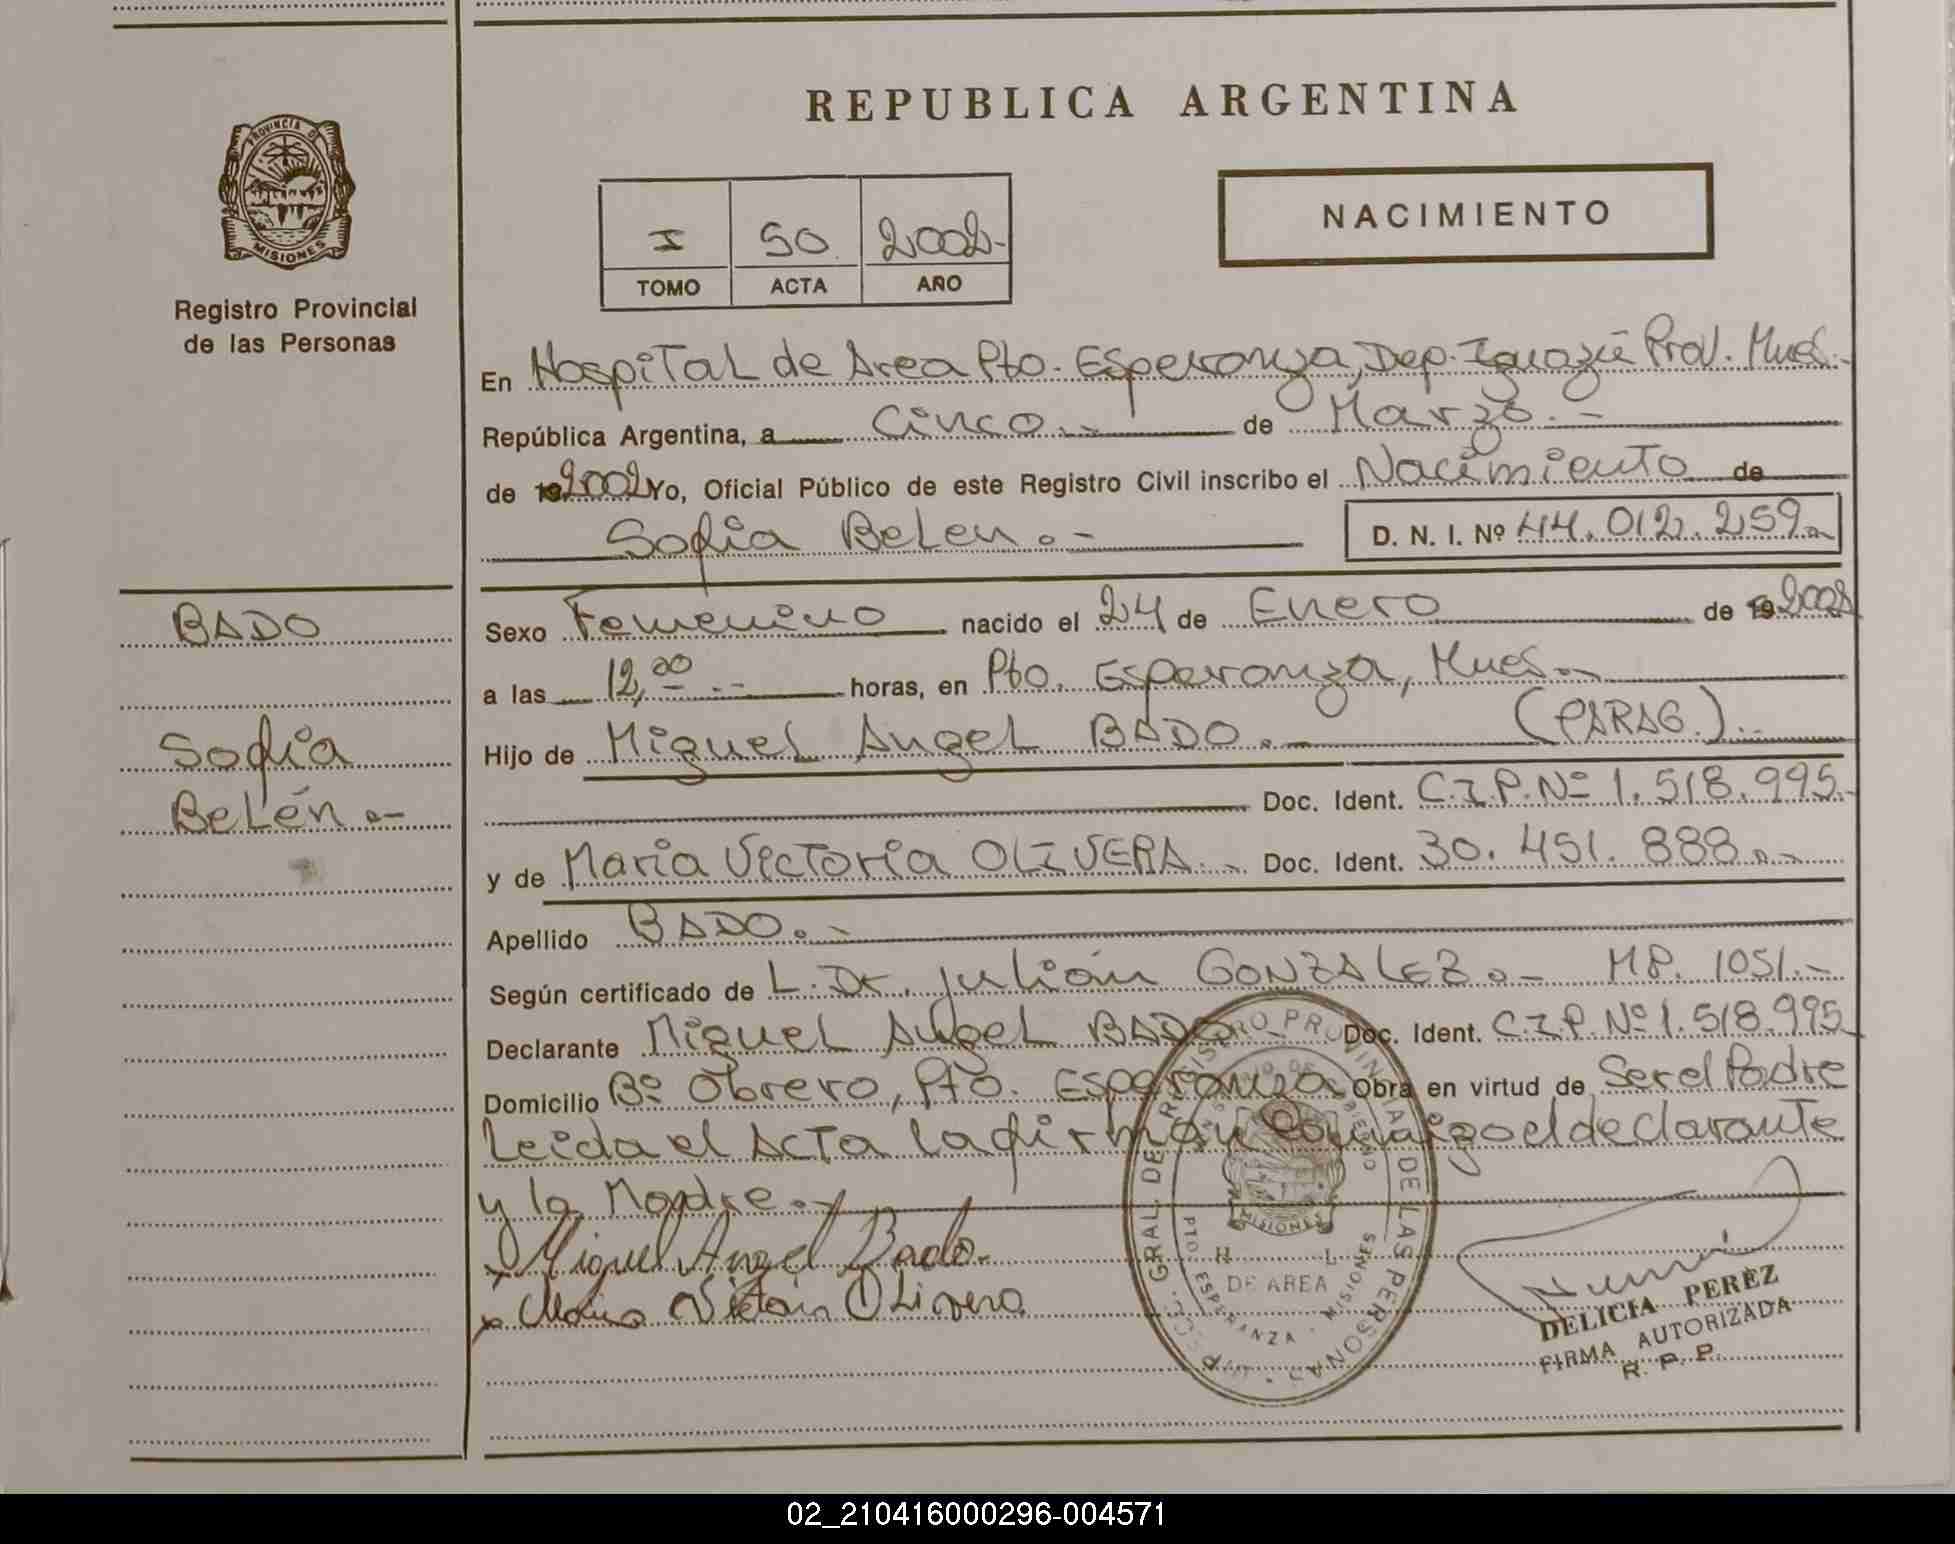 REPUBLICA ARGENTINA
PROVINCIA D
MISIONES
Registro Provincial
de las Personas
NACIMIENTO
I 50 2002-
TOMO ACTA AÑO
En Hospital de Area Pto. Esperanza, Dep. Iguazú Prov. Mnes.-
República Argentina, a Cinco.- de Marzo.-
de 19 2002 Yo, Oficial Público de este Registro Civil inscribo el Nacimiento de
Sofia Belen.- D. N. I. Nº 44.012.259.-
BADO
Sofia
Belén.-
Sexo Femenino nacido el 24 de Enero de 19 2002
a las 12,00 -- horas, en Pto. Esperanza, Mnes.-
Hijo de Miguel Angel BADO.- (PARAG.).-
Doc. Ident. C.I.P. Nº 1.518.995.-
y de Maria Victoria OLIVERA.- Doc. Ident. 30.451.888.-
Apellido BADO.-
Según certificado de L. Dr. Julián GONZALEZ.- M.P. 1051.-
Declarante Miguel Angel BADO Doc. Ident. C.I.P. Nº 1.518.995
Domicilio Bº Obrero, Pto. Esperanza Obra en virtud de Ser el Padre
Leida el Acta la firman conmigo el declarante
y la Madre.-
x Miguel Angel Bado.-
x Maria Victoria Olivera
GRAL. DE REGISTRO PROVINCIAL DE LAS PERSONAS
MISIONES
H L
DE AREA
PTO. ESPERANZA - MISIONES
DELICIA PEREZ
FIRMA AUTORIZADA
R. P. P.
02_210416000296-004571